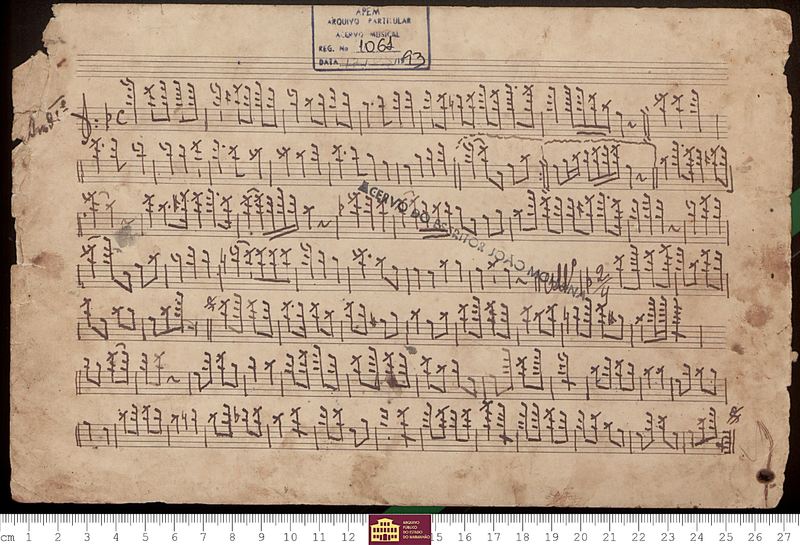 APEM
ARQUIVO PARTICULAR
ACERVO MUSICAL
REG. No 1061
DATA 193
And.te
C
ACERVO DO ESCRITOR JOÃO MOHANA
2/4
cm 1 2 3 4 5 6 7 8 9 10 11 12 5 16 17 18 19 20 21 22 23 24 25 26 27
ARQUIVO
PÚBLICO
DO ESTADO
DO MARANHÃO